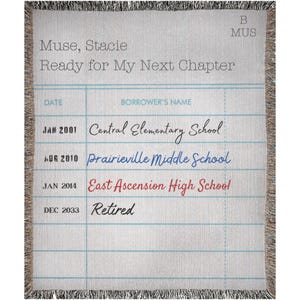 B
MUS
Muse, Stacie
Ready for My Next Chapter
DATE BORROWER'S NAME
JAN 2001 Central Elementary School
AUG 2010 Prairieville Middle School
JAN 2014 East Ascension High School
DEC 2033 Retired